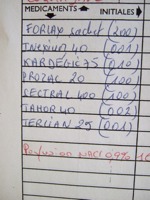 MEDICAMENTS INITIALES
FORLAX sachet (200)
INEXIUM 40 (011)
KARDEGIC 75 (010)
PROZAC 20 (100)
SECTRAL 400 (100)
TAHOR 40 (002)
TERCIAN 25 (001)
Perfusion NaCl 0,9%